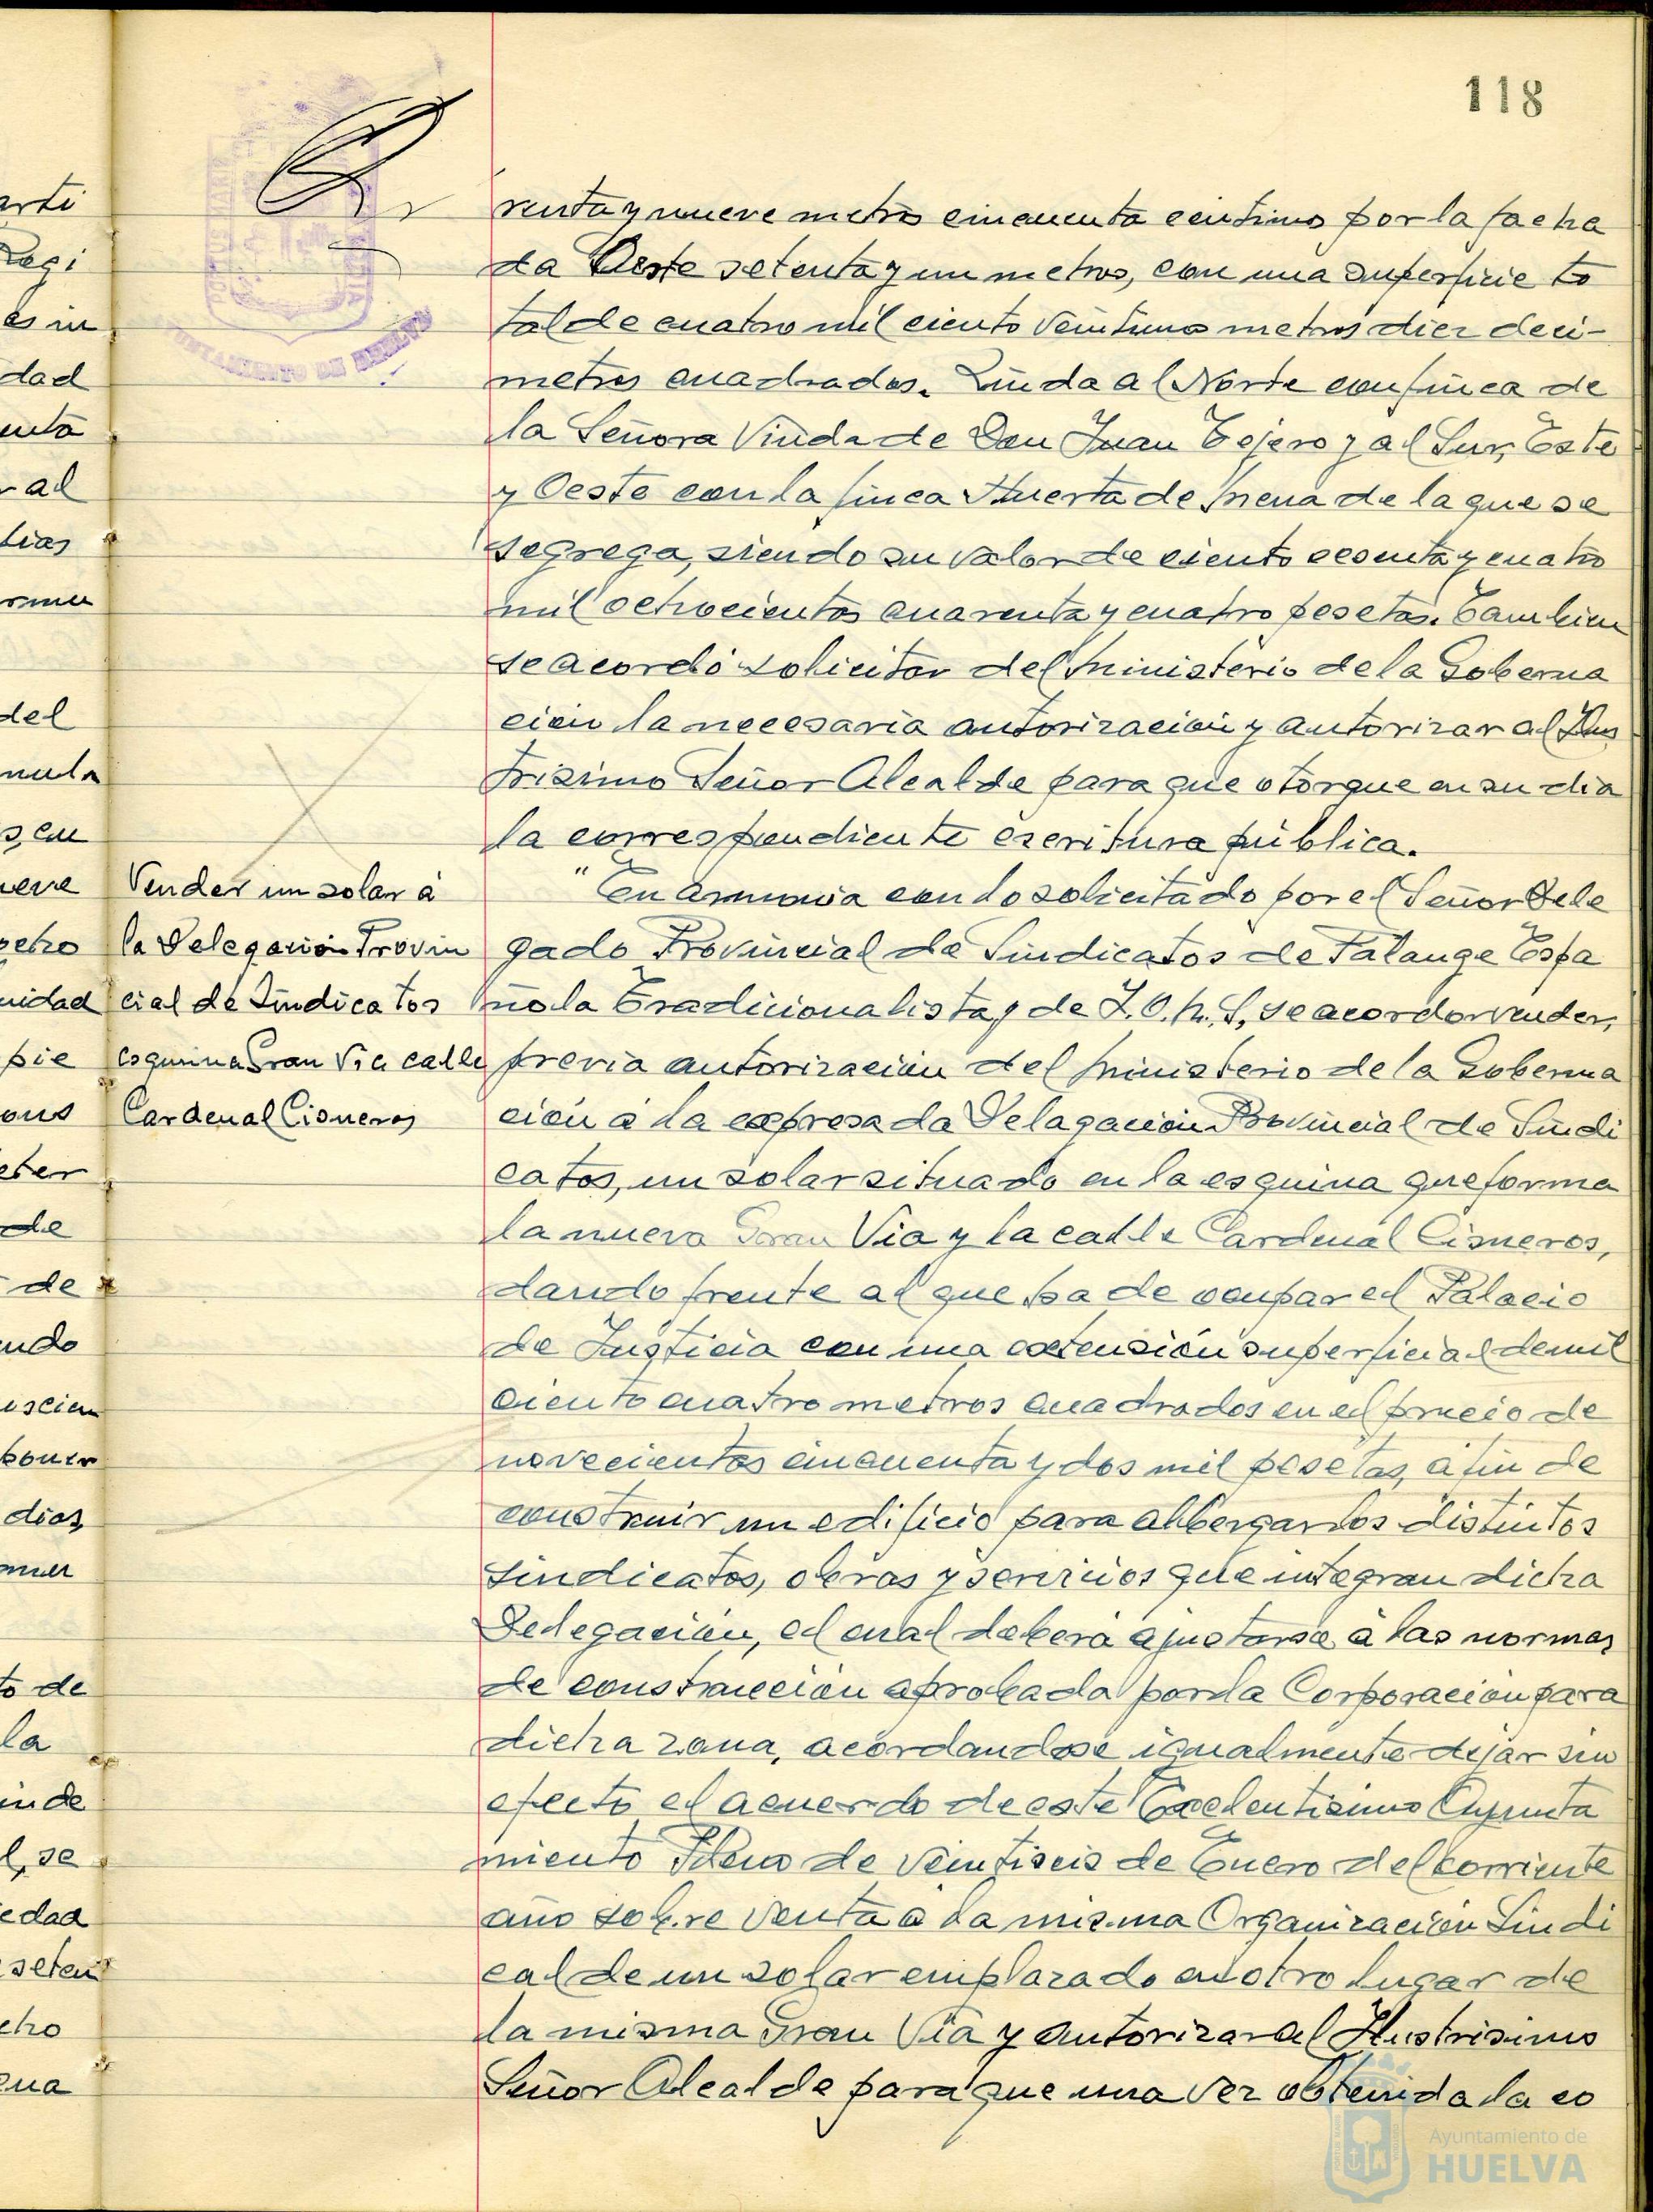 118
renta y nueve metros cincuenta centimos por la facha
da Oeste setenta y un metros, con una superficie to
tal de cuatro mil ciento veintiuno metros diez deci-
metros cuadrados. Linda al Norte con finca de
la Señora Viuda de Don Juan Tejero y al Sur, Este
y Oeste con la finca Huerta de Mena de la que se
segrega, siendo su valor de ciento sesenta y cuatro
mil ochocientos cuarenta y cuatro pesetas. Tambien
se acordó solicitar del Ministerio de la Goberna
ción la necesaria autorización y autorizar al Ilus
trisimo Señor Alcalde para que otorgue en su dia
la correspondiente escritura pública.
Vender un solar á
la Delegación Provin
cial de Sindicatos
esquina Gran Via calle
Cardenal Cisneros
"En armonia con lo solicitado por el Señor Dele
gado Provincial de Sindicatos de Falange Espa
ñola Tradicionalista y de J.O.N.S, se acordo vender,
previa autorización del Ministerio de la Goberna
ción á la expresada Delagación Provincial de Sindi
catos, un solar situado en la esquina que forma
la nueva Gran Via y la calle Cardenal Cisneros,
dando frente al que ha de ocupar el Palacio
de Justicia con una extensión superficial de mil
ciento cuatro metros cuadrados en el precio de
novecientas cincuenta y dos mil pesetas, a fin de
construir un edificio para albergar los distintos
sindicatos, obras y servicios que integran dicha
Delegación, el cual deberá ajustarse á las normas
de construcción aprobada por la Corporación para
dicha zona, acordandose igualmente dejar sin
efecto el acuerdo de este Excelentisimo Ayunta
miento Pleno de veintiseis de Enero del corriente
año sobre venta á la misma Organización Sindi
cal de un solar emplazado en otro lugar de
la misma Gran Via y autorizar al Ilustrisimo
Señor Alcalde para que una vez obtenida la co
Ayuntamiento de
HUELVA